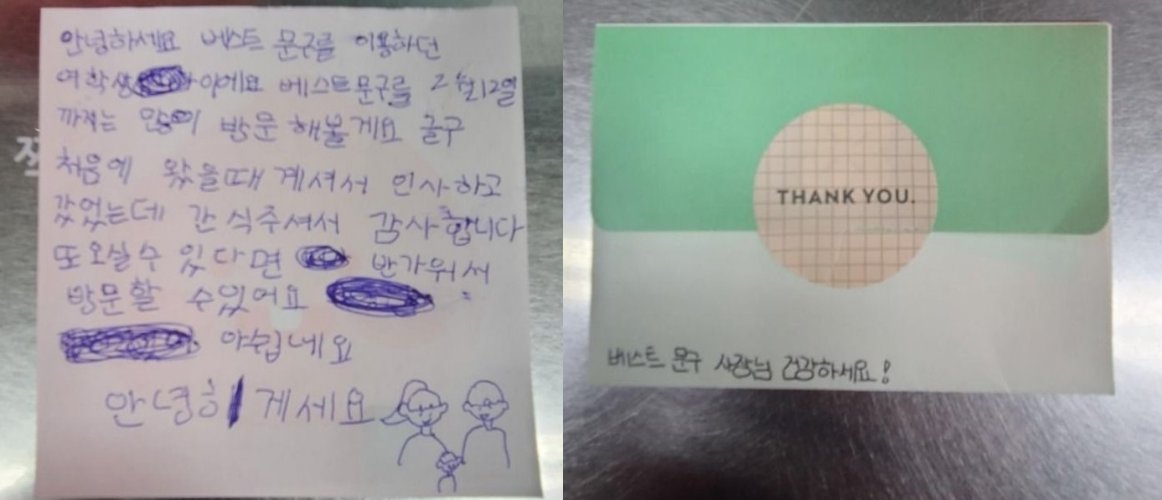 안녕하세요 베스트 문구를 이용하던
여학생 이에요 베스트문구를 2월12일
까지는 많이 방문해볼게요 글구
처음에 왔을때 계셔서 인사하고
갔었는데 간식주셔서 감사합니다
또오실수 있다면 반가워서
방문할 수있어요
아쉽네요
안녕히 게세요
THANK YOU.
베스트 문구 사장님 건강하세요!